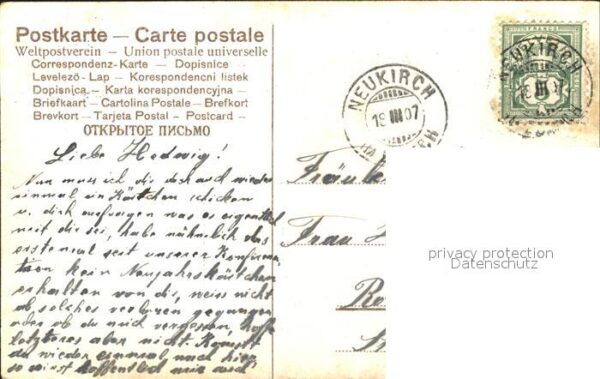 Postkarte — Carte postale
Weltpostverein — Union postale universelle
Correspondenz-Karte — Dopisnice
Levelező-Lap — Korespondencni listek
Dopisnica — Karta korespondencyjna —
Briefkaart — Cartolina Postale — Brefkort
Brevkort — Tarjeta Postal — Postcard —
ОТКРЫТОЕ ПИСЬМО
Liebe Hedwig!
Nun muss ich dir doch auch wieder
einmal ein Kärtchen schicken
u. dich anfragen was es eigentlich
mit dir sei, habe nämlich das
erstemal seit unserer Konfirma-
tion kein Neujahrskärtchen
erhalten von dir, weiss nicht
ob solches verloren gegangen
oder ob du mich vergessen, hoffe
letzteres aber nicht. Kommst
du wieder einmal nach hier
so wirst hoffentlich mir auch
NEUKIRCH
19 III 07
NEUKIRCH
III 07
HELVETIA
Fräule
Frau
privacy protection
Datenschutz